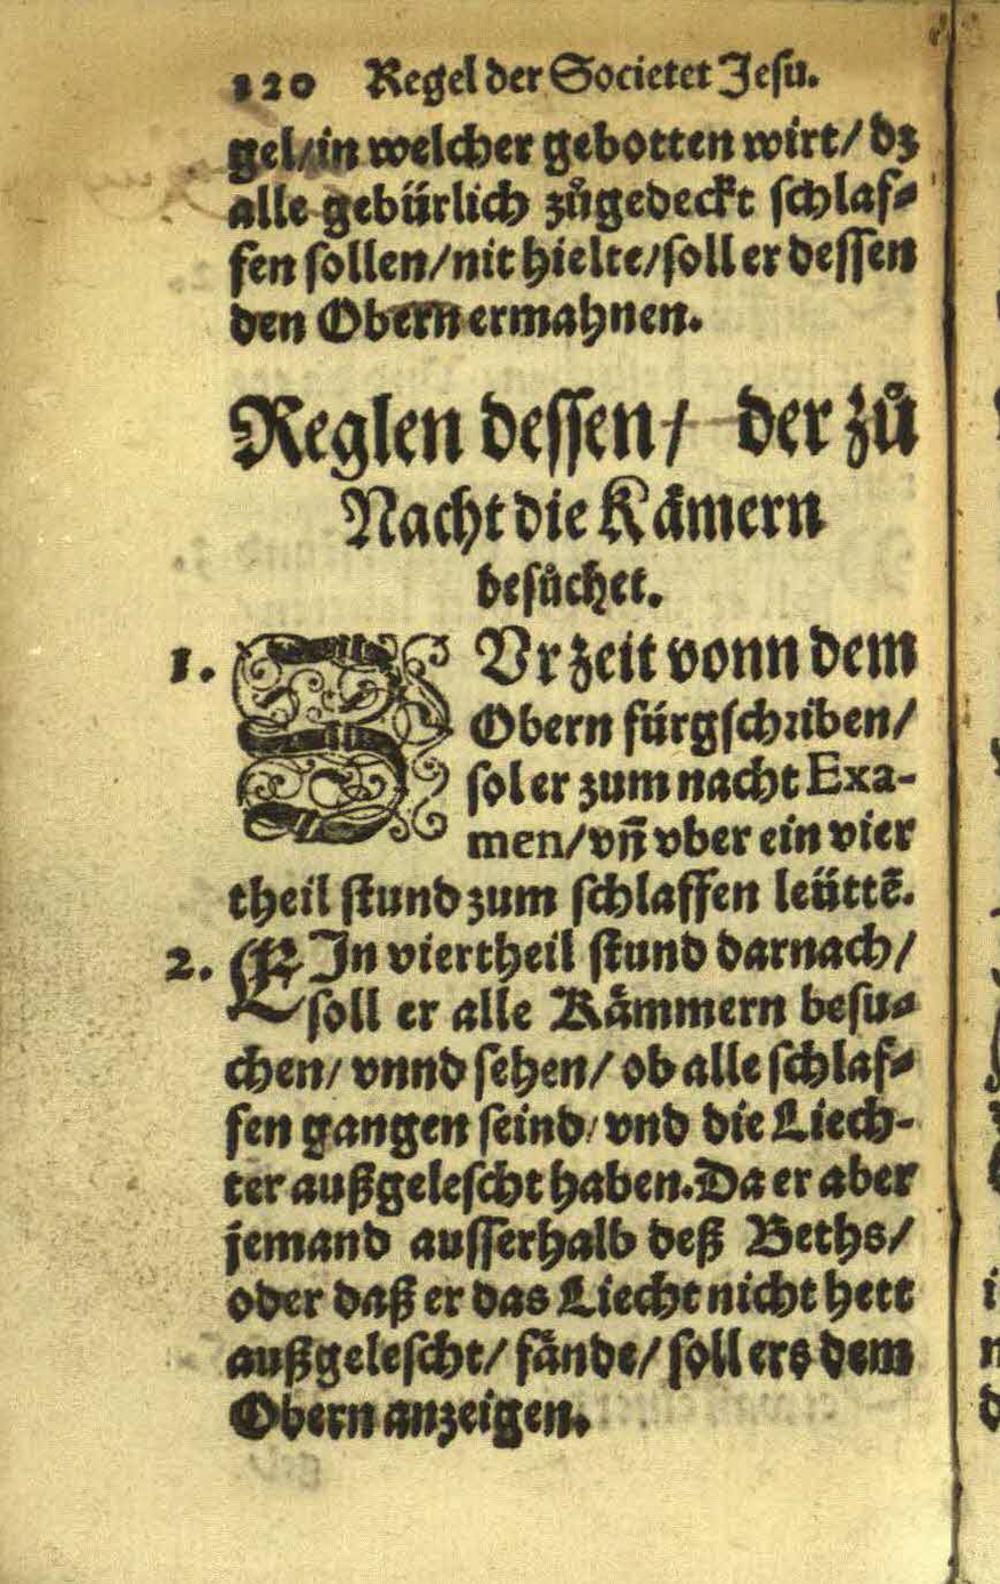 120 Regel der Societet Jesu.
gel/in welcher gebotten wirt/ dz
alle gebürlich zůgedeckt schlaf⸗
fen sollen/nit hielte/soll er dessen
den Obern ermahnen.
Reglen dessen/ der zů
Nacht die Kämern
besůchet.
1. ZUr zeit vonn dem
Obern fürgschriben/
sol er zum nacht Exa-
men/vñ vber ein vier
theil stund zum schlaffen leüttẽ.
2. EIn viertheil stund darnach/
soll er alle Kämmern besu⸗
chen/ vnnd sehen/ ob alle schlaf⸗
fen gangen seind/ vnd die Liech-
ter außgelescht haben. Da er aber
jemand ausserhalb deß Beths/
oder daß er das Liecht nicht hett
außgelescht/ fände/ soll ers dem
Obern anzeigen.